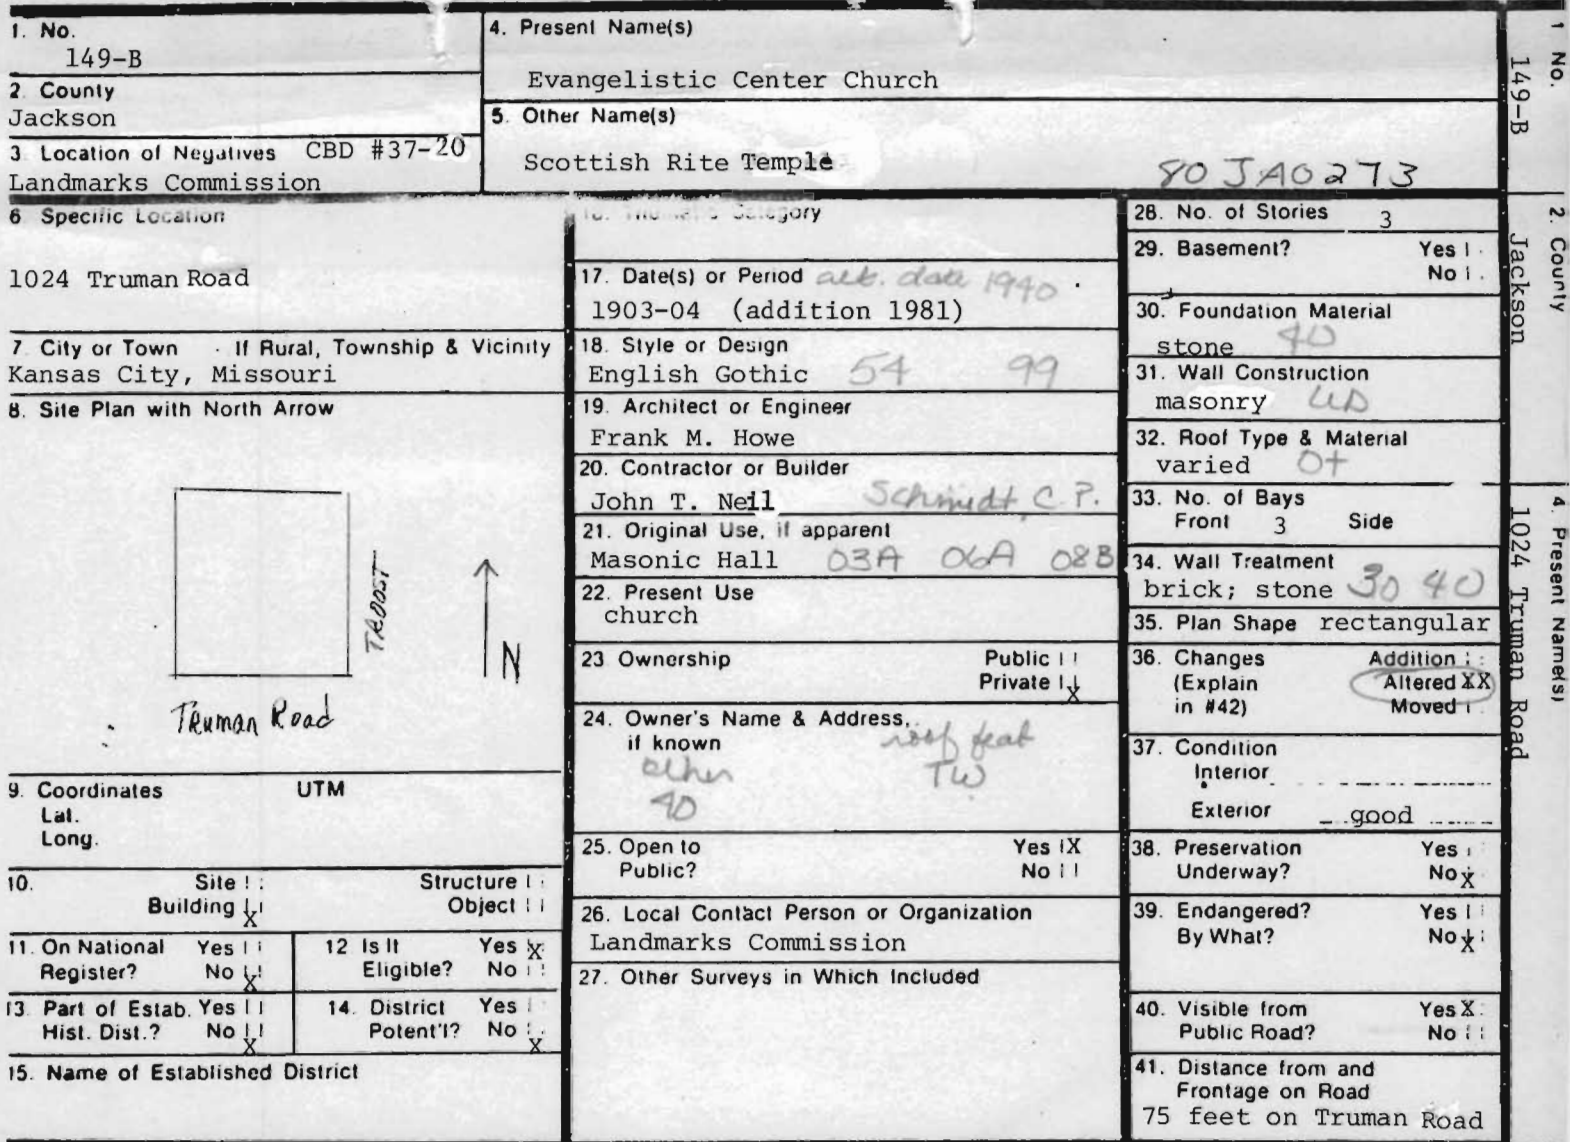 1. No.
149-B
2. County
Jackson
3. Location of Negatives CBD #37-20
Landmarks Commission
4. Present Name(s)
Evangelistic Center Church
5. Other Name(s)
Scottish Rite Temple
80 JA0273
6 Specific Location
1024 Truman Road
7. City or Town If Rural, Township & Vicinity
Kansas City, Missouri
8. Site Plan with North Arrow
TROOST
N
Truman Road
9. Coordinates UTM
Lat.
Long.
10. Site Structure
Building X Object
11. On National Yes
Register? No X
12 Is It Yes X
Eligible? No
13. Part of Estab. Yes
Hist. Dist.? No X
14. District Yes
Potent'l? No X
15. Name of Established District
16. Thematic Category
17. Date(s) or Period alt. date 1940
1903-04 (addition 1981)
18. Style or Design
English Gothic 54 99
19. Architect or Engineer
Frank M. Howe
20. Contractor or Builder
John T. Neil Schmidt, C.P.
21. Original Use, if apparent
Masonic Hall 03A 06A 08B
22. Present Use
church
23 Ownership Public
Private X
24. Owner's Name & Address,
if known
roof feat
other TW
40
25. Open to Yes X
Public? No
26. Local Contact Person or Organization
Landmarks Commission
27. Other Surveys in Which Included
28. No. of Stories 3
29. Basement? Yes
No
30. Foundation Material
stone 40
31. Wall Construction
masonry UD
32. Roof Type & Material
varied OT
33. No. of Bays
Front 3 Side
34. Wall Treatment
brick; stone 30 40
35. Plan Shape rectangular
36. Changes Addition
(Explain Altered XX
in #42) Moved
37. Condition
Interior
Exterior good
38. Preservation Yes
Underway? No X
39. Endangered? Yes
By What? No X
40. Visible from Yes X
Public Road? No
41. Distance from and
Frontage on Road
75 feet on Truman Road
1 No.
149-B
2. County
Jackson
4. Present Name(s)
1024 Truman Road